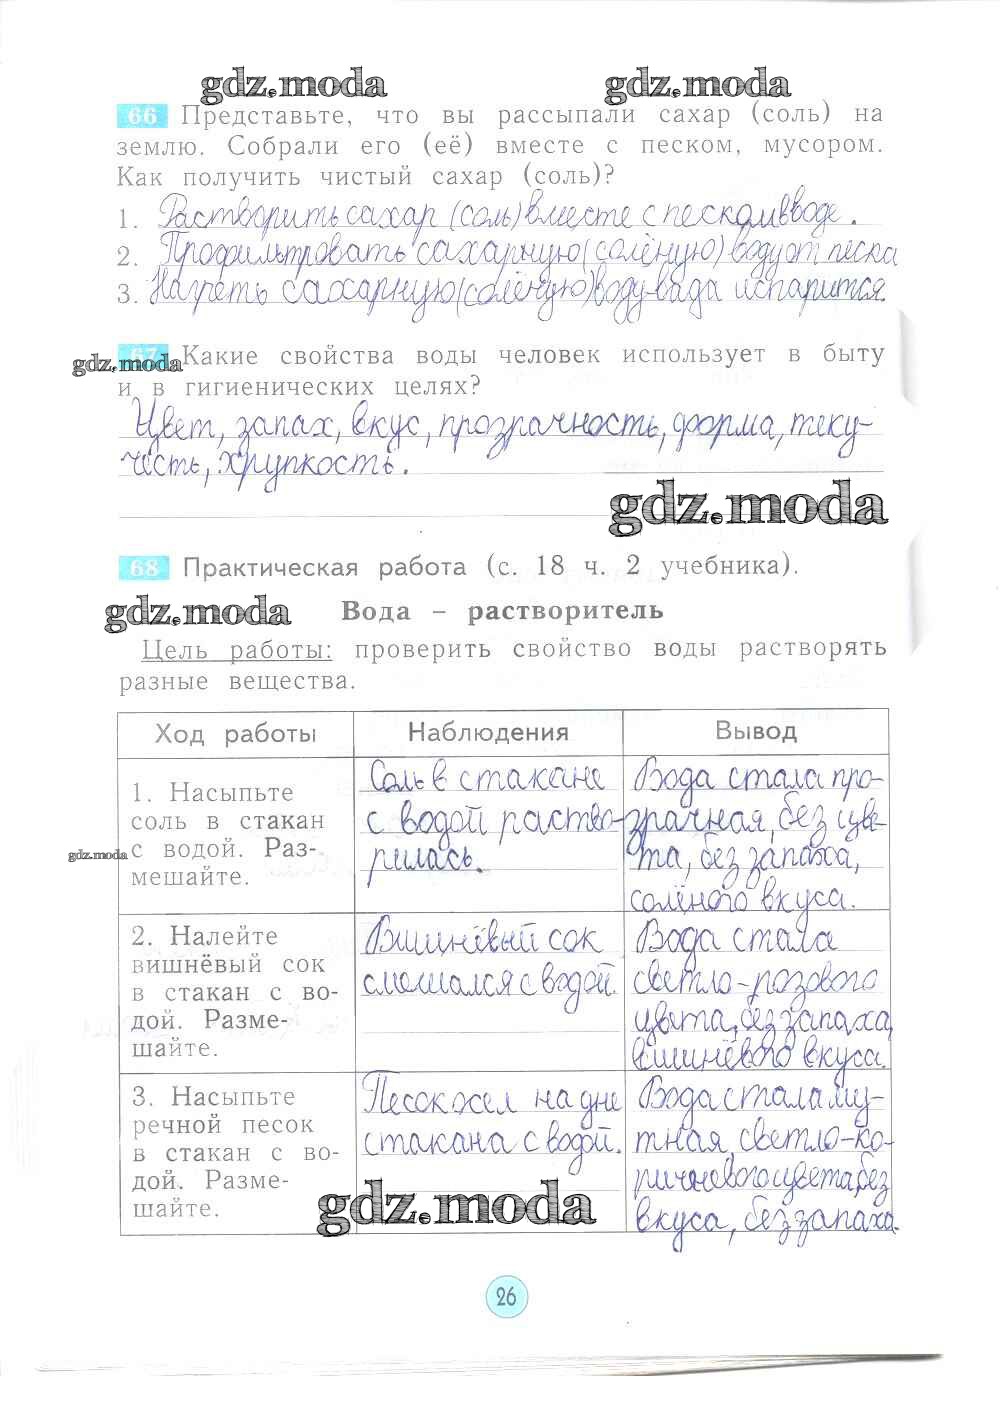 gdz.moda gdz.moda
66 Представьте, что вы рассыпали сахар (соль) на
землю. Собрали его (её) вместе с песком, мусором.
Как получить чистый сахар (соль)?
1. Растворить сахар (соль) вместе с песком в воде.
2. Профильтровать сахарную (солёную) воду от песка
3. Нагреть сахарную (солёную) воду-вада испарится.
67 Какие свойства воды человек использует в быту
gdz.moda
и в гигиенических целях?
Цвет, запах, вкус, прозрачность, форма, теку-
честь, хрупкость.
gdz.moda
68 Практическая работа (с. 18 ч. 2 учебника).
gdz.moda
Вода – растворитель
Цель работы: проверить свойство воды растворять
разные вещества.
Ход работы
Наблюдения
Вывод
1. Насыпьте
соль в стакан
с водой. Раз-
мешайте.
gdz.moda
Соль в стакане
с водой раство-
рилась.
Вода стала про-
зрачная, без цве-
та, без запаха,
солёного вкуса.
2. Налейте
вишнёвый сок
в стакан с во-
дой. Разме-
шайте.
Вишнёвый сок
смешался с водой.
Вода стала
светло-розового
цвета, без запаха,
вишнёвого вкуса.
3. Насыпьте
речной песок
в стакан с во-
дой. Разме-
шайте.
Песок осел на дне
стакана с водой.
gdz.moda
Вода стала му-
тная, светло-ко-
ричневого цвета, без
вкуса, без запаха.
26